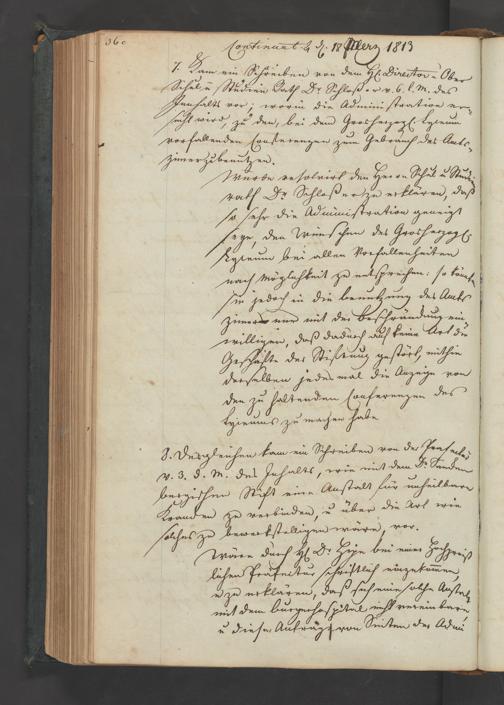 360
Continuat. d. 18 Merz 1813
7. Kam ein Schreiben von dem H. Director u. Ober
Schul u Studien Rath Dr. Schlosser v. 6. l. M. des
Innhalts vor; worin die Administration er-
sucht wird, zu den, bei dem Grosherzogl. Lyceum
vorfallenden Conferenzen zum Gebrauch des Amts-
zimer zu benutzen.
Wurde resolvirt den Herrn Schul u Stud.
rath Dr. Schlosser zu erklären, daß
so sehr die Administration geneigt
seye, den Wünschen des Grosherzogl.
Lyceum bei allen Vorfallenheiten
nach Möglichkeit zu entsprechen: so könne
sie jedoch in die benutzung des Amts
zimers nur mit der beschränkung ein
willigen, daß dadurch auf keine Art die
Geschäfte der Stiftung gestört, mithin
derselben jedesmal die Anzeige von
den zu haltenden Conferenzen des
Lyceums zu machen habe
8. Desgleichen kam ein Schreiben von der Praefectur
v. 3. d. M. des Inhalts, wie mit dem Dr. Senken
bergischen Stift eine Anstalt für unheilbare
Kranken zu verbinden, u über die Art wie
solches zu bewerkstelligen wäre, vor.
Wäre durch H. Dr. bei einer Hochpreis
lichen Präfectur schriftlich einzukommen,
u zu erklären, daß sich eine solche Anstalt
mit dem Bürgerhospital nicht vereinbaren
u diese Anträge von Seiten der Admi